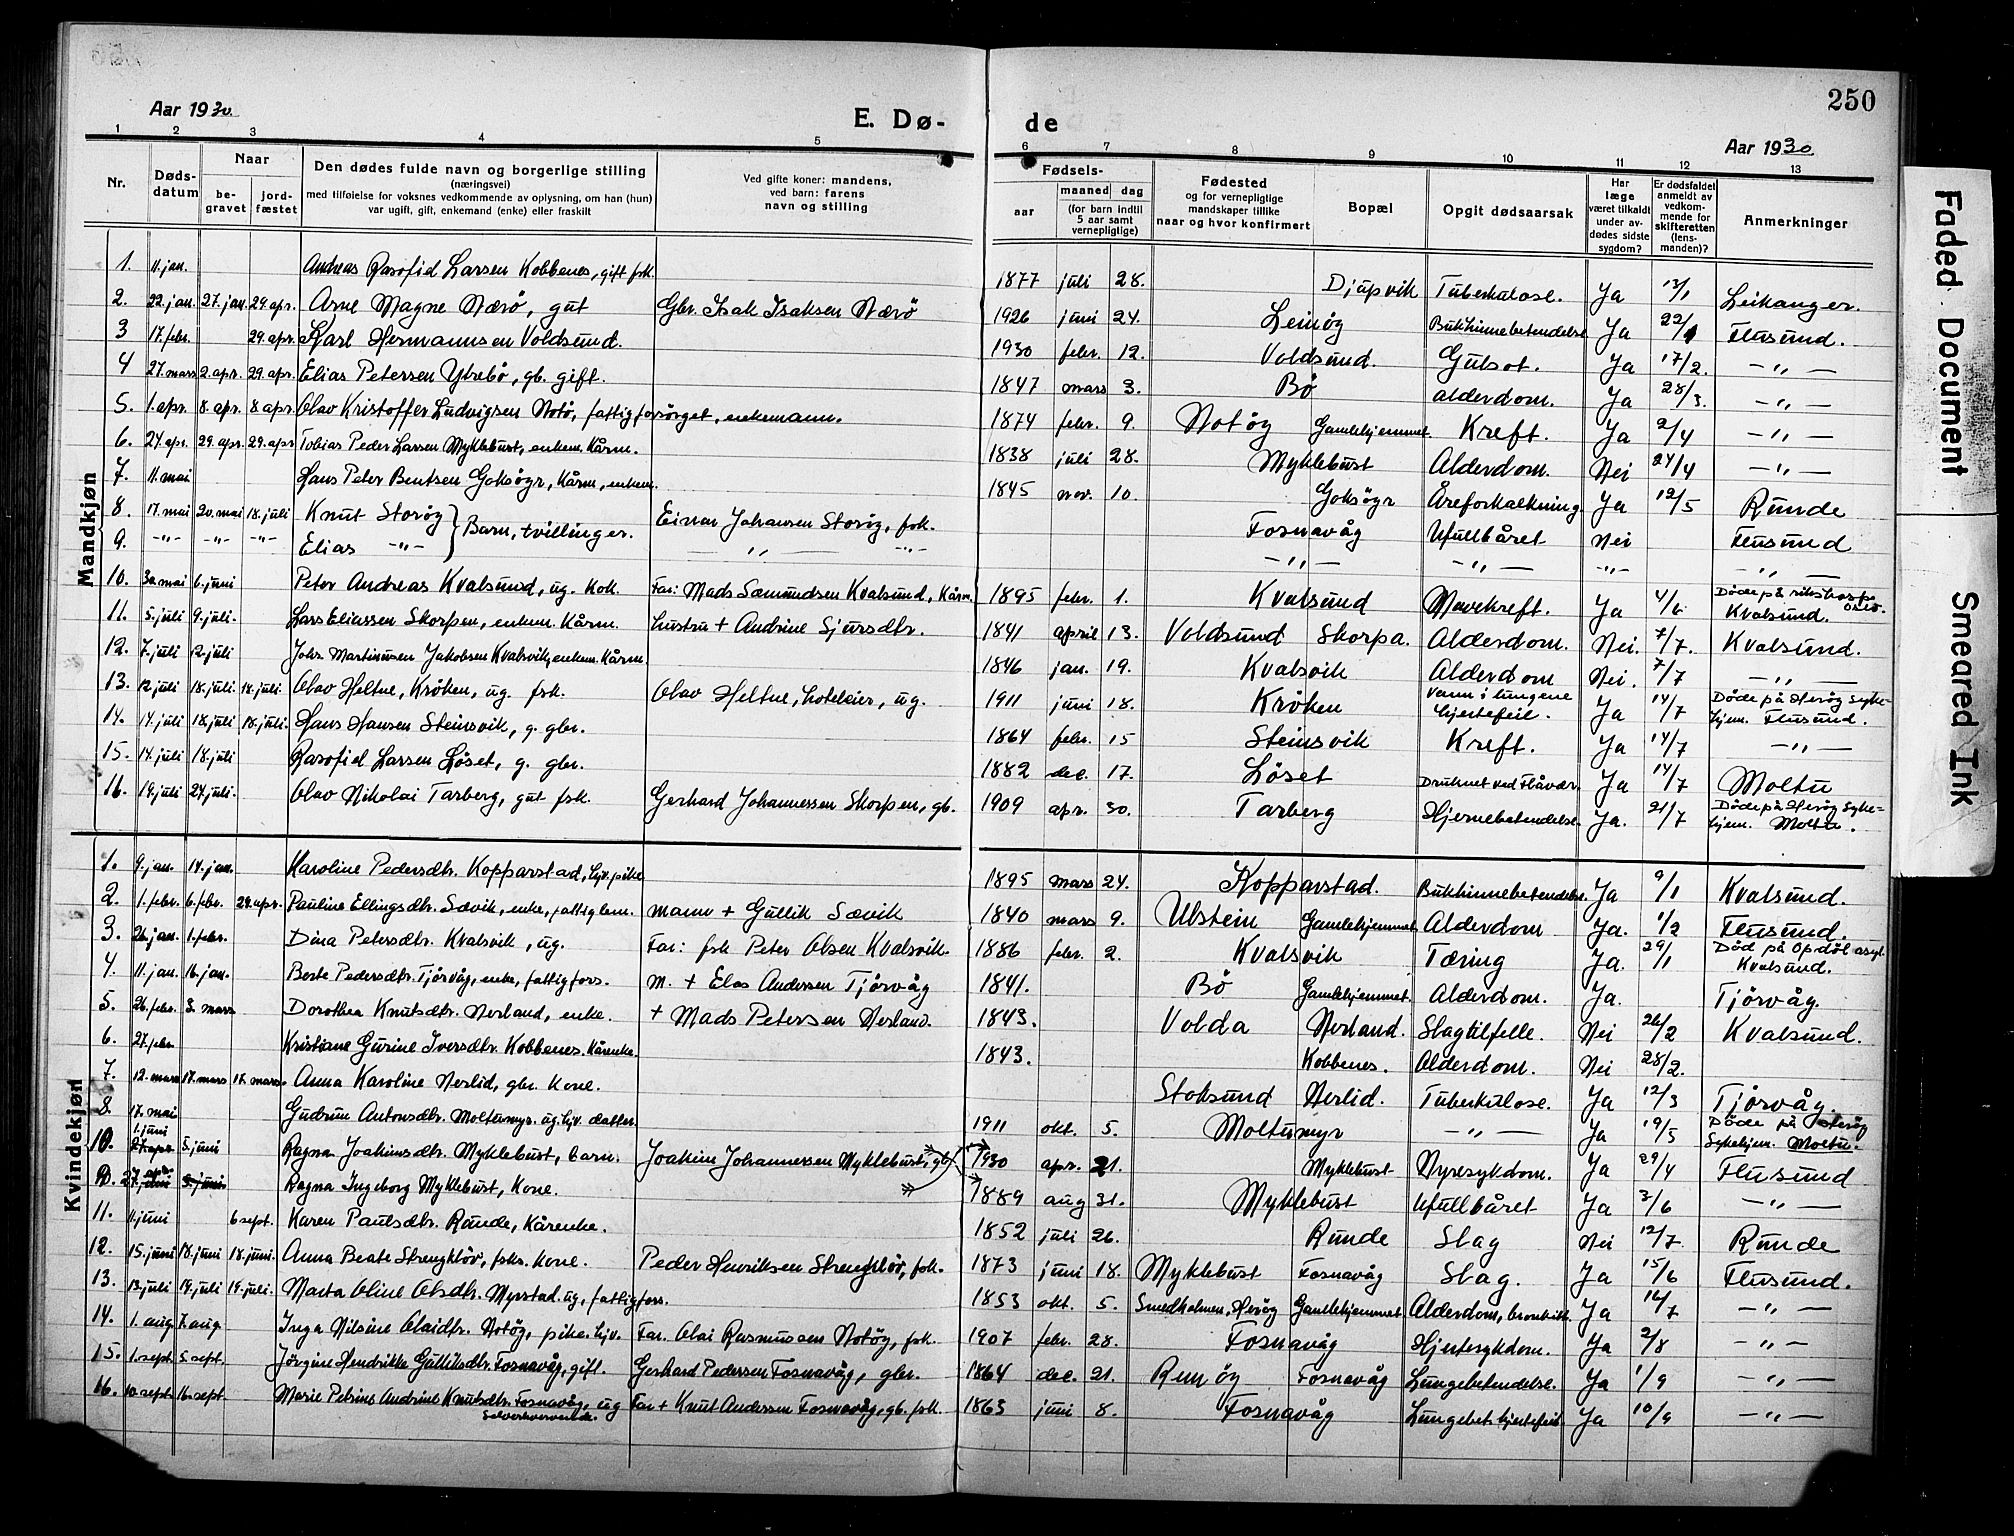 250
Aar 1930.
E. Dø-
de
Aar 1930
1 2 3 4 5 6 7 8 9 10 11 12 13
Nr.
Døds-
datum
Naar
be-
gravet
jord-
fæstet
Den dødes fulde navn og borgerlige stilling
(næringsvei)
med tilføielse for voksnes vedkommende av oplysning, om han (hun)
var ugift, gift, enkemand (enke) eller fraskilt
Ved gifte koner: mandens,
ved barn: farens
navn og stilling
Fødsels-
aar
maaned dag
(for barn indtil
5 aar samt
vernepligtige)
Fødested
og for vernepligtige
mandskaper tillike
naar og hvor konfirmert
Bopæl
Opgit dødsaarsak
Har
læge
været tilkaldt
under av-
dødes sidste
sygdom?
Er dødsfaldet
anmeldt av
vedkom-
mende for
skifteretten
(lens-
manden)?
Anmerkninger
Mandkjøn
1. 11. jan. Andreas Rasofid Larsen Kobbenes, gift fsk. 1877 juli 28. Djupvik Tuberkulose. Ja 13/1 Leikanger.
2. 22. jan. 27. jan. 29. apr. Arne Magne Nærø, gut Gbr. Isak Isaksen Nærø 1926 juni 24. Leinøy Bukhinnebetendelse Ja 22/1 Flusund.
3 17. febr. 29. apr. Karl Hermannsen Voldsund. 1930 febr. 12. Voldsund. Gulsot. Ja 17/2. -"-
4 27. mars 2. apr. 29. apr. Elias Petersen Ytrebø, gb. gift. 1847 mars 3. Bø alderdom. Ja 28/3. -"-
5. 1. apr. 8. apr. 8 apr. Olav Kristoffer Ludvigsen Notø, fattigforsörget, enkemann. 1874 febr. 9. Notøy Gamlehjemmet. Kreft. Ja 2/4 -"-
6. 24. apr. 29. apr. 29. apr. Tobias Peder Larsen Myklebust, enkem. Kårm. 1838 juli 28. Myklebust Alderdom. Nei 24/4 -"-
7. 11. mai Hans Peter Bentsen Goksöyr, Kårm, enkem. 1845 nov. 10. Goksöyr Åreforkalkning Ja 12/5 Runde
8. 17. mai 20. mai 18. juli Knut Storøy } Barn, tvillinger. Einar Johansen Storøy, fsk. Fosnavåg Ufullbåret Nei Flusund
9. -"- -"- -"- Elias -"- -"- -"- -"- -"- -"- -"-
10. 30. mai 6. juni Peter Andreas Kvalsund, ug. kok. Far: Mads Sæmundsen Kvalsund, Kårm. 1895 febr. 1. Kvalsund Mavekreft. Ja 4/6 Døde på rikshosp. Oslo. Kvalsund.
11. 5. juli 9. juli. Lars Eliassen Skorpen, enkem. Kårm. hustru + Andrine Sjursdtr. 1841 april 13. Voldsund Skorpa. Alderdom. Nei. 7/7. Kvalsund.
12. 7. juli 12. juli Johs. Martinusen Jakobsen Kvalsvik, enkem. Kårm. 1846 jan. 19. Kvalsvik Alderdom Nei. 7/7 -"-
13. 12 juli 18. juli. 18. juli. Olav Heltne, Krøken, ug. fsk. Olav Heltne, hoteleier, ug. 1911 juni 18. Krøken Vann i lungene hjertefeil. Ja 14/7 Døde på Herøy Syke-hjem. Flusund.
14. 14. juli 18. juli 18. juli. Hans Hansen Steinsvik, g. gbr. 1864 febr. 15 Steinsvik Kreft. Ja 14/7 -"-
15. 14. juli 18. juli Rasofid Larsen Løset, g. gbr. 1882 dec. 17. Løset Druknet ved Flåvær. Ja 14/7 Moltu
16. 19. juli 24. juli. Olav Nikolai Tarberg, gut fsk. Gerhard Johannessen Skorpen, gb. 1909 apr. 30. Tarberg Hjernebetendelse. Ja. 21/7 Døde på Herøy Syke-hjem. Moltu.
Kvindekjøn
1. 9. jan. 14. jan. Karoline Pedersdtr. Kopparstad, hjv. pike 1895 mars 24. Kopparstad. Bukhinnebetendelse. Ja 9/1 Kvalsund.
2. 1. febr. 6. febr. 29. apr. Pauline Ellingsdtr. Sævik, enke, fattiglem. mann + Gullik Sævik 1840 mars 9. Ulstein Gamlehjemmet Alderdom Ja. 1/2 Flusund.
3. 26. jan. 1. febr. Dina Petersdtr. Kvalsvik, ug. Far: fsk Peter Olsen Kvalsvik. 1886 febr. 2. Kvalsvik Tæring Ja. 29/1 Død på Opdøl asyl. Kvalsund.
4. 11. jan. 16. jan. Berte Pedersdtr. Tjörvåg, enke, fattigfors. m. + Elas Andersen Tjörvåg 1841. Bø Gamlehjemmet. Alderdom. Ja. Tjörvåg.
5. 26. febr. 3. mars Dorothea Knutsdtr. Nerland, enke. + Mads Petersen Nerland. 1843. Volda Nerland. Slagtilfelle. Nei 26/2 Kvalsund.
6. 27. febr. Kristiane Gurine Iversdtr. Kobbenes. Kårenke. 1843. Kobbenes. Alderdom. Nei 28/2.
7. 12. mars 17. mars 17. mars. Anna Karoline Nerlid, gbr. Kone. Stoksund Nerlid. Tuberkulose. Ja 12/3 Tjörvåg.
8. 17. mai Gudrun Antonsdtr. Moltumyr. ug. hjv. datter. 1911 okt. 5. Moltumyr -"- Ja 19/5 Døde på Herøy Sykehjem. Moltu.
10. 1. juni 5. juni Ragna Joakimsdtr. Myklebust, barn. Joakim Johannessen Myklebust, gbr. 1930 apr. 21. Myklebust Nyresykdom. Ja 29/4 Flusund
9. 27. apr. Ragna Ingeborg Myklebust, Kone. 1889 aug 31. Myklebust Ufullbåret Ja 3/6 -"-
11. 11. juni 6 sept. Karen Paulsdtr. Runde, Kårenke. 1852 juli 26. Runde Slag Nei 12/7 Runde
12. 15. juni 18. juni 18. juni. Anna Beate Strengkløv, fskr. Kone. Peder Henriksen Strengkløv, fsk. 1873 juni 18. Myklebust Fosnavåg Slag. Ja 15/6 Flusund.
13. 13. juli 19. juli 19. juli. Marta Oline Olsdtr. Myrstad. ug, fattigfors. 1853 okt. 5. Smedholmen, Herøy Gamlehjemmet Alderdom, bronkitt. Ja 14/7 -"-
14. 1. aug 7. aug Inga Nilsine Olaidtr. Notøy, pike. hjv. Far. Olai Rasmussen Notøy, fsk. 1907 febr. 28. Fosnavåg Hjertesykdom. Ja 2/8 -"-
15. 1. sept. 5. sept. Jörgine Hendrikke Gulliksdtr. Fosnavåg, gift. Gerhard Pedersen Fosnavåg, gbr. 1864 dec. 21. Remøy Fosnavåg Lungebetendelse. Ja 1/9 -"-
16. 10 sept. 16. sept. Marie Petrine Andrine Knutsdtr. Fosnavåg, ug Selverhvervende. Far + Knut Andersen Fosnavåg, gb. fsk. 1863 juni 8. Fosnavåg Lungebet. hjertefeil Ja 10/9 -"-
Faded Document
Smeared Ink